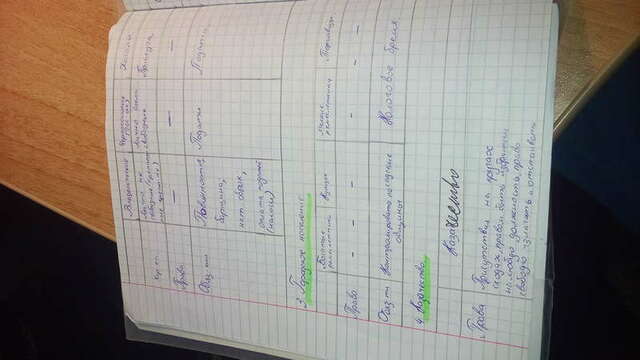 Владельческие Черносошные Холопы
Лично не Лично были Прислуга
свободные свободные
Права — — —
Обяз-ти Повинности, Подати Подати
барщина,
нат. оброк,
оплата податей
(налоги)
3. Городское население
Богатые ремесленники Купцы Мелкие ремесленники Торговцы
Права - - - - - -
Обяз-ти Контролировать посадские Налоговое бремя
общины
4. Казачество
Казачество
Права Присутствия на кругах
сходах, правом быть избранным
на любую должность, право
свободно излагать и отстаивать